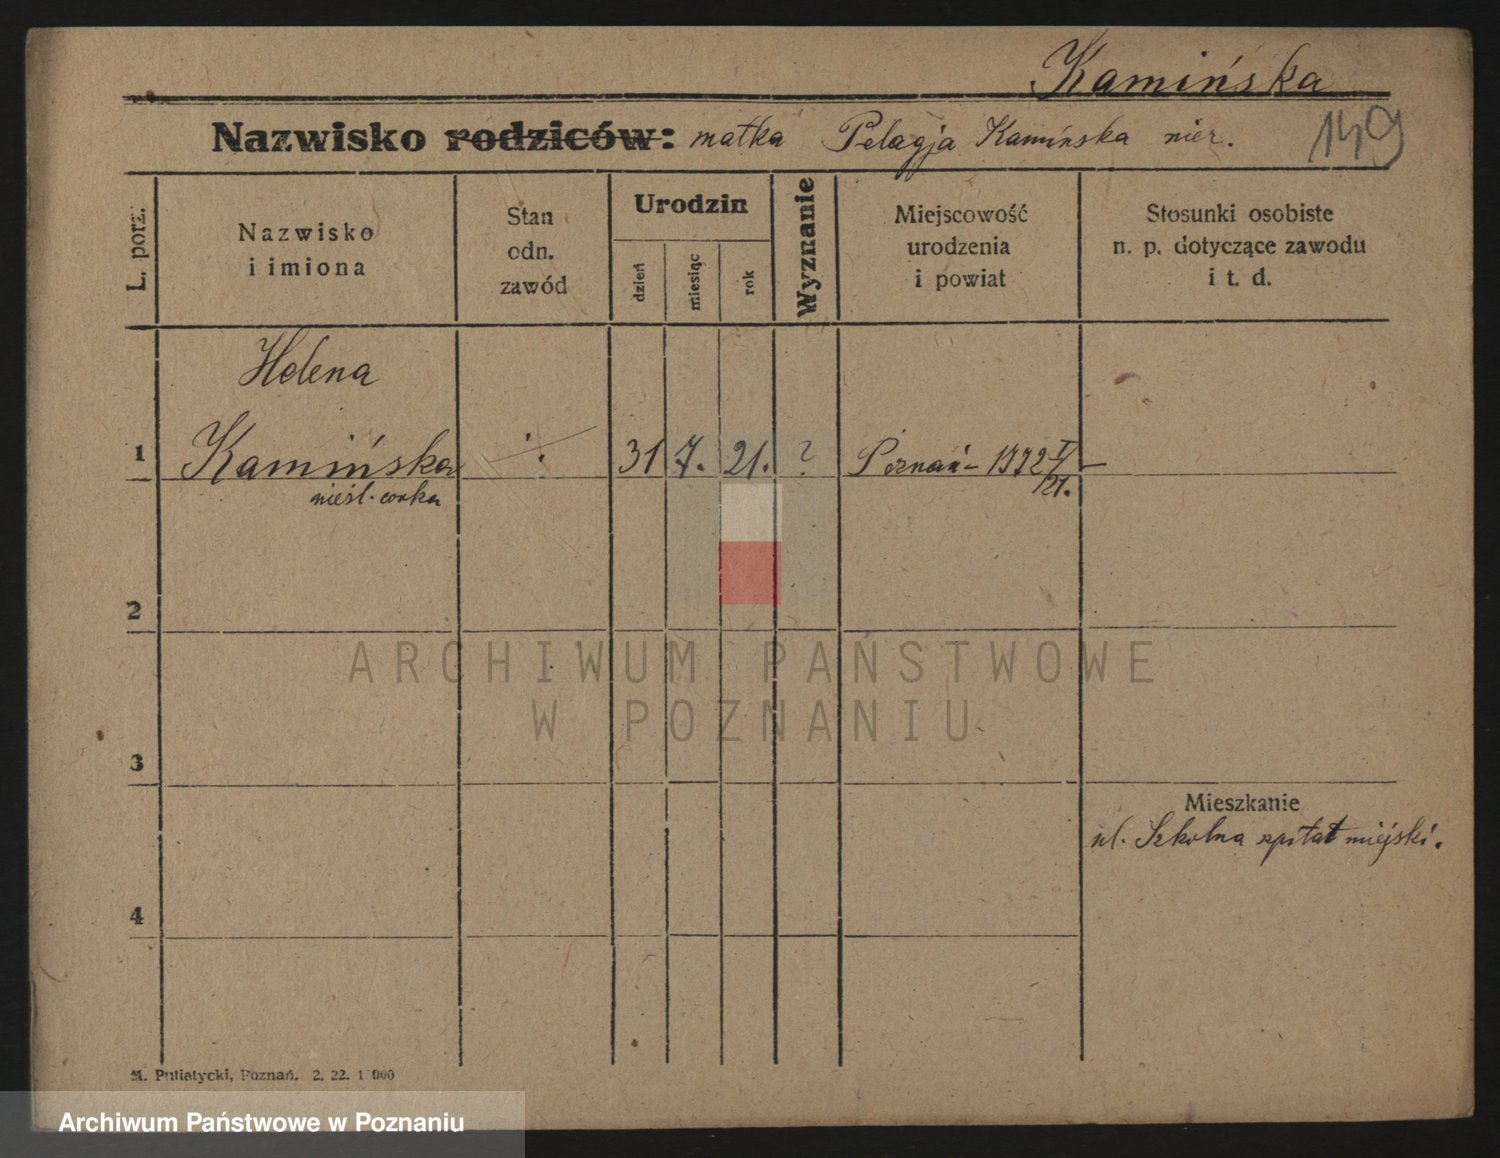 Kamińska
Nazwisko rodziców: matka Pelagja Kamińska nier.
149
L. porz.
Nazwisko
i imiona
Stan
odn.
zawód
Urodzin
dzień
miesiąc
rok
Wyznanie
Miejscowość
urodzenia
i powiat
Stosunki osobiste
n. p. dotyczące zawodu
i t. d.
Helena
1 Kamińska ·/. 31 7. 21. ? Poznań - 1772 I/21. —
nieśl. córka
2
3
Mieszkanie
ul. Szkolna szpital miejski.
4
M. Putiatycki, Poznań. 2. 22.
ARCHIWUM PAŃSTWOWE
W POZNANIU
Archiwum Państwowe w Poznaniu